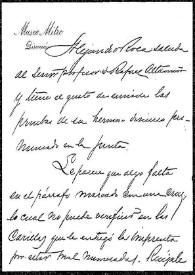 Museo Mitre
Dirección
Alejandro Rosa saluda
al Señor profesor D. Rafael Altamira
y tiene el gusto de enviarle las
pruebas de su hermoso discurso pro-
nunciado en la Junta.
Le parece que algo falta
en el párrafo marcado con una cruz,
lo cual no puede verificar en las
carillas que le entregó la imprenta
por estar mal numeradas.